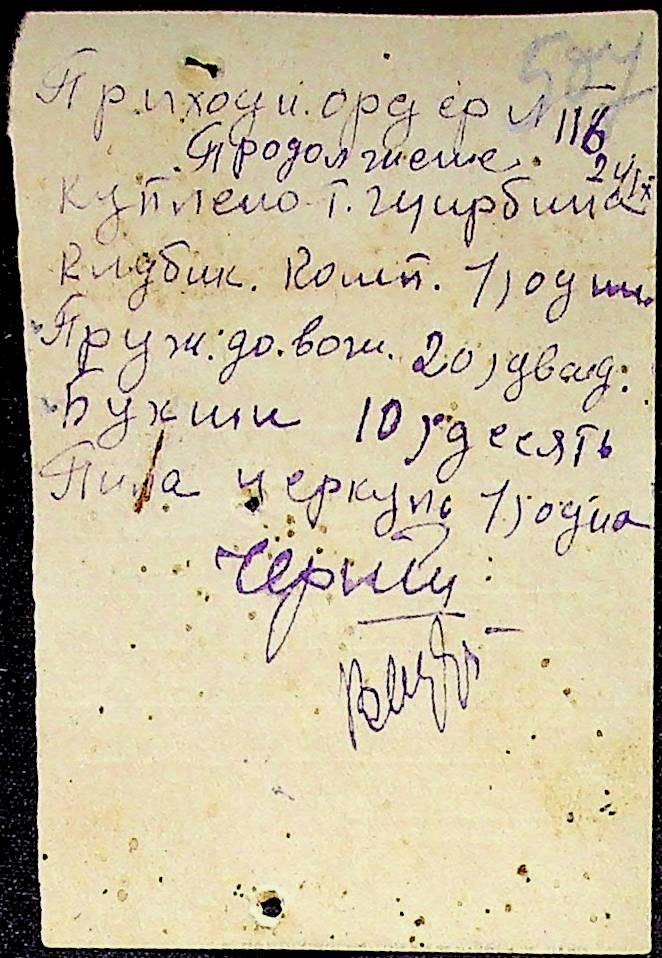 Приходн. ордер №
116
Продолжение.
24/IX
Куплено Т. Щирбина
Клубик. Комп. 1, один.
Пруж. до. вож. 20, двад.
Букши 10, десять
Пила церкуль 1, одна